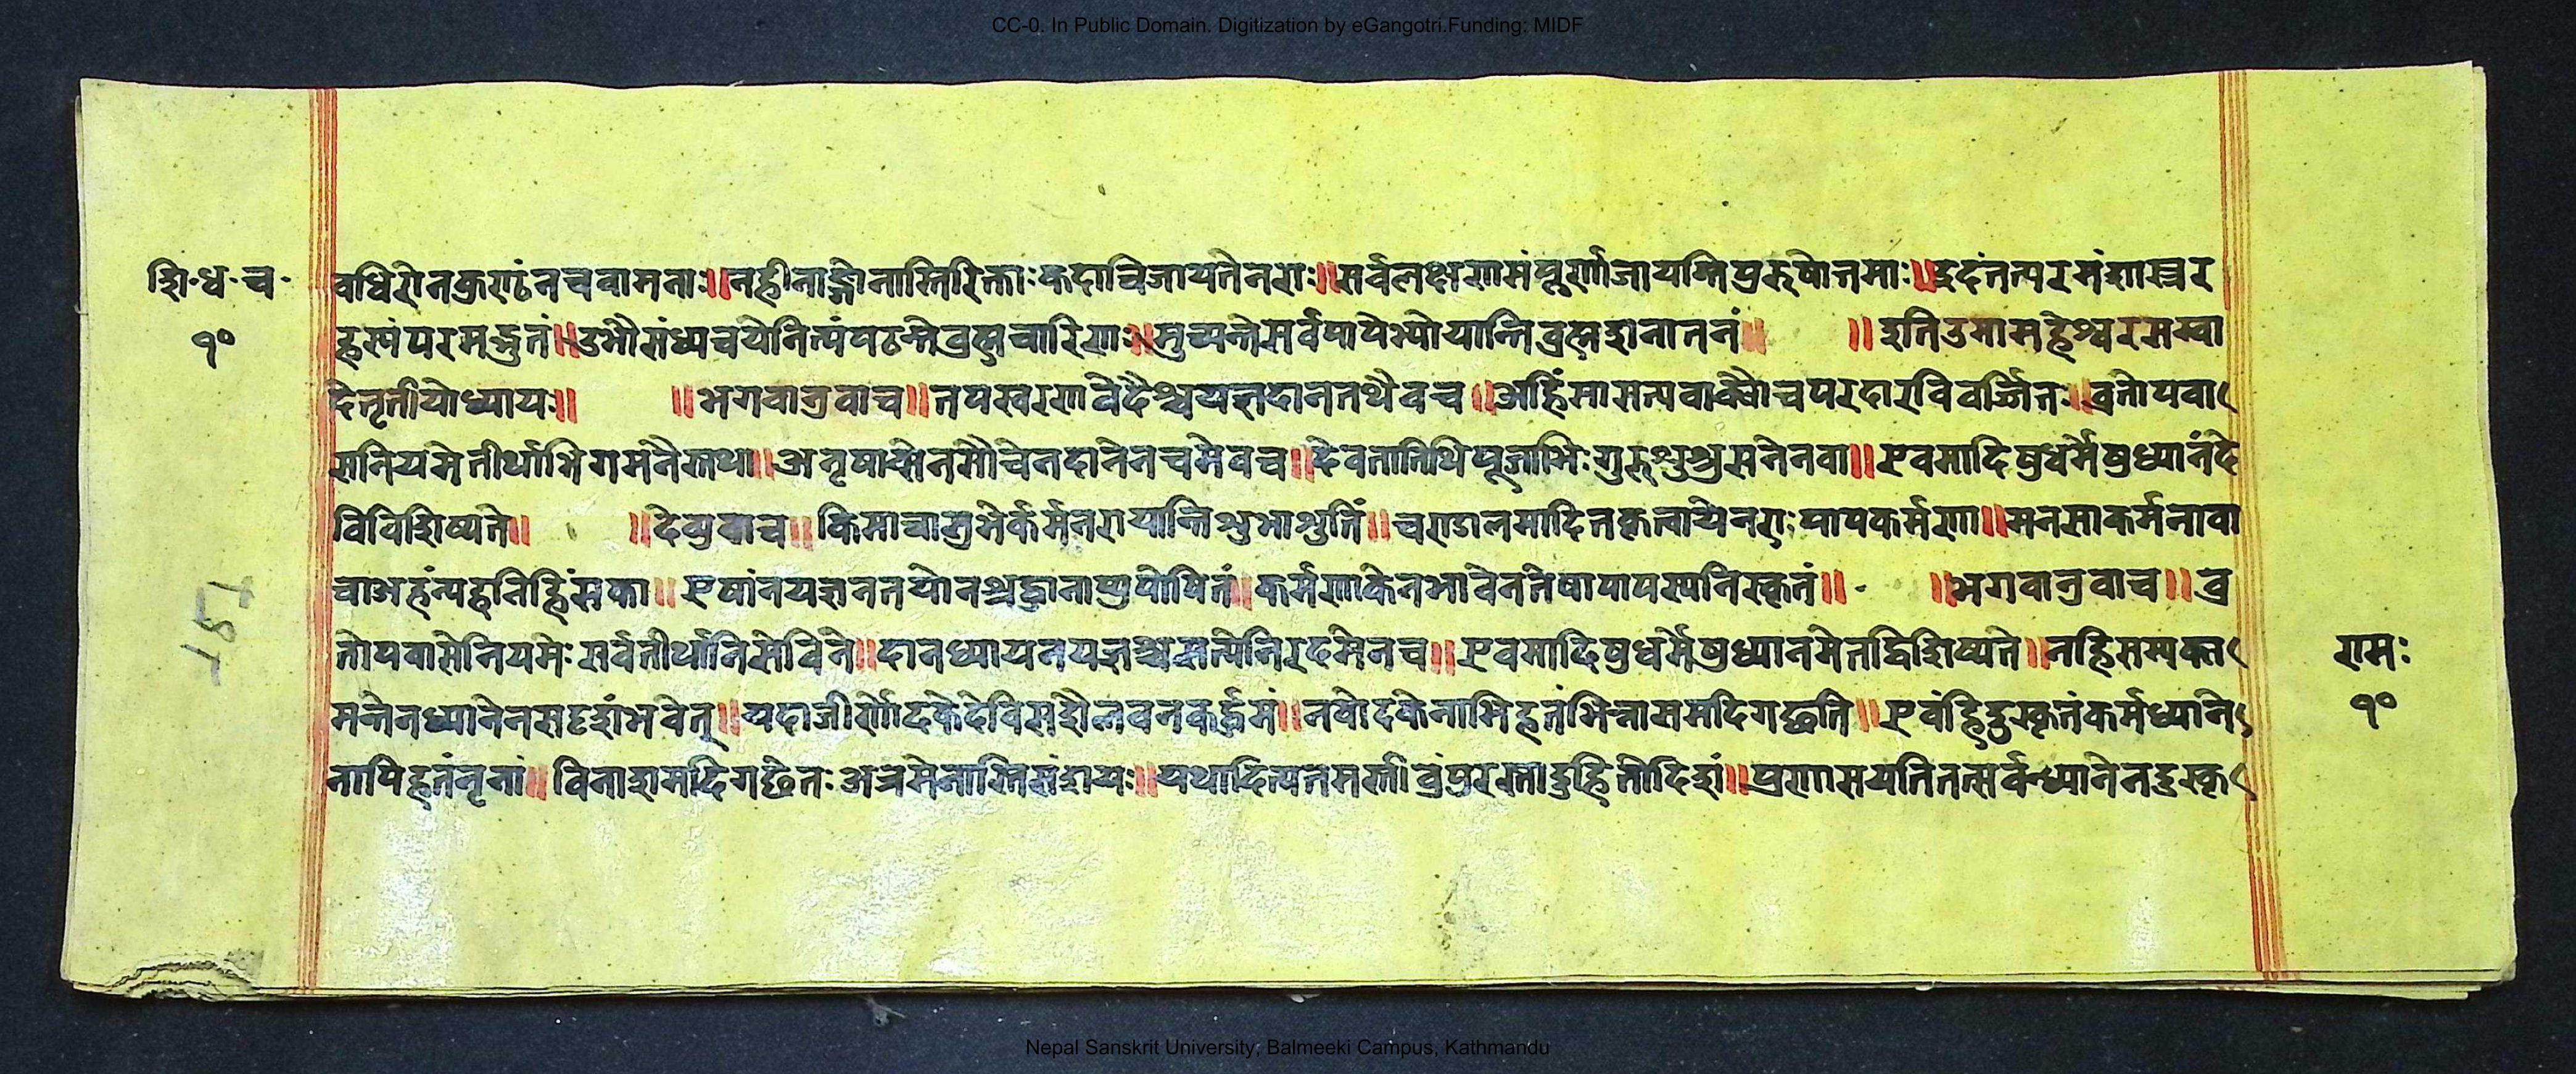 CC-0. In Public Domain. Digitization by eGangotri.Funding: MIDF
शि॰ध॰च॰
१०
वधिरोनक्रराढंनचवामनाः॥नहीनाङ्गोनास्तिरिक्ताःकदाचिजायतेनराः॥सर्वलक्षरासंपूर्णाजायन्तिपुरुषोत्तमाः॥इदंतत्परमंशास्त्रर
हस्यंपरमद्भुतं॥उभौसंध्यचयेनित्यंपठन्तेब्रह्मचारिणः॥मुच्यन्तेसर्वपापेभ्योयान्तिब्रह्मशनातनं॥ ॥इतिउमामहेश्वरसम्वा
देतृतीयोध्यायः॥ ॥भगवानुवाच॥तपस्वरणवेदैश्चयज्ञदानतथैवच॥अहिंसासत्यवाक्शौचपरदारविवर्ज्जितः॥व्रतोपवा
सनियमेतीर्थाभिगमनैस्तथा॥अनृषासेनसौचेनदानेनचमेवच॥देवतातिथिपूजाभिःगुरुशुश्रुसनेनवा॥एवमादिषुधर्मेषुध्यानंदे
विविशिष्यते॥ ॥देव्युवाच॥किमाचाशुभेर्कर्मनरायान्तिशुभाशुतिं॥चराडालमादितकृत्वायेनराःपापकर्मणा॥मनसाकर्मनावा
चाअहंन्यहनिहिंसका॥एषांनयज्ञनतयोनश्रद्धानाप्युपोषितं॥कर्मणाकेनभावेनतेषापापस्यनिस्कृतं॥ ॥भगवानुवाच॥व्र
तोपवासेनियमेःसर्वतीर्थानिसेविने॥दानध्यायनयज्ञश्चसत्येनिरदमेनच॥एवमादिषुधर्मेषुध्यानमेतद्विशिष्यते॥नहिसम्यक्त
मन्तेनध्यानेनसदृशंभवेत्॥यदाजीर्णोदकेदेविसशैलवनकर्द्दमं॥नवोदकेनाभिहतंभित्नासमदिगछति॥एवंहिदुस्कृतंकर्मध्याने
नापिहतंनृनां॥विनाशमदिगछेतःअत्रमेनास्तिसंशयः॥यथादित्यतमस्तीव्रंपुरस्तादुहितोदिशं॥प्रणासयतितत्सर्वन्ध्यानेनदुस्कृ
रामः
१०
Nepal Sanskrit University, Balmeeki Campus, Kathmandu